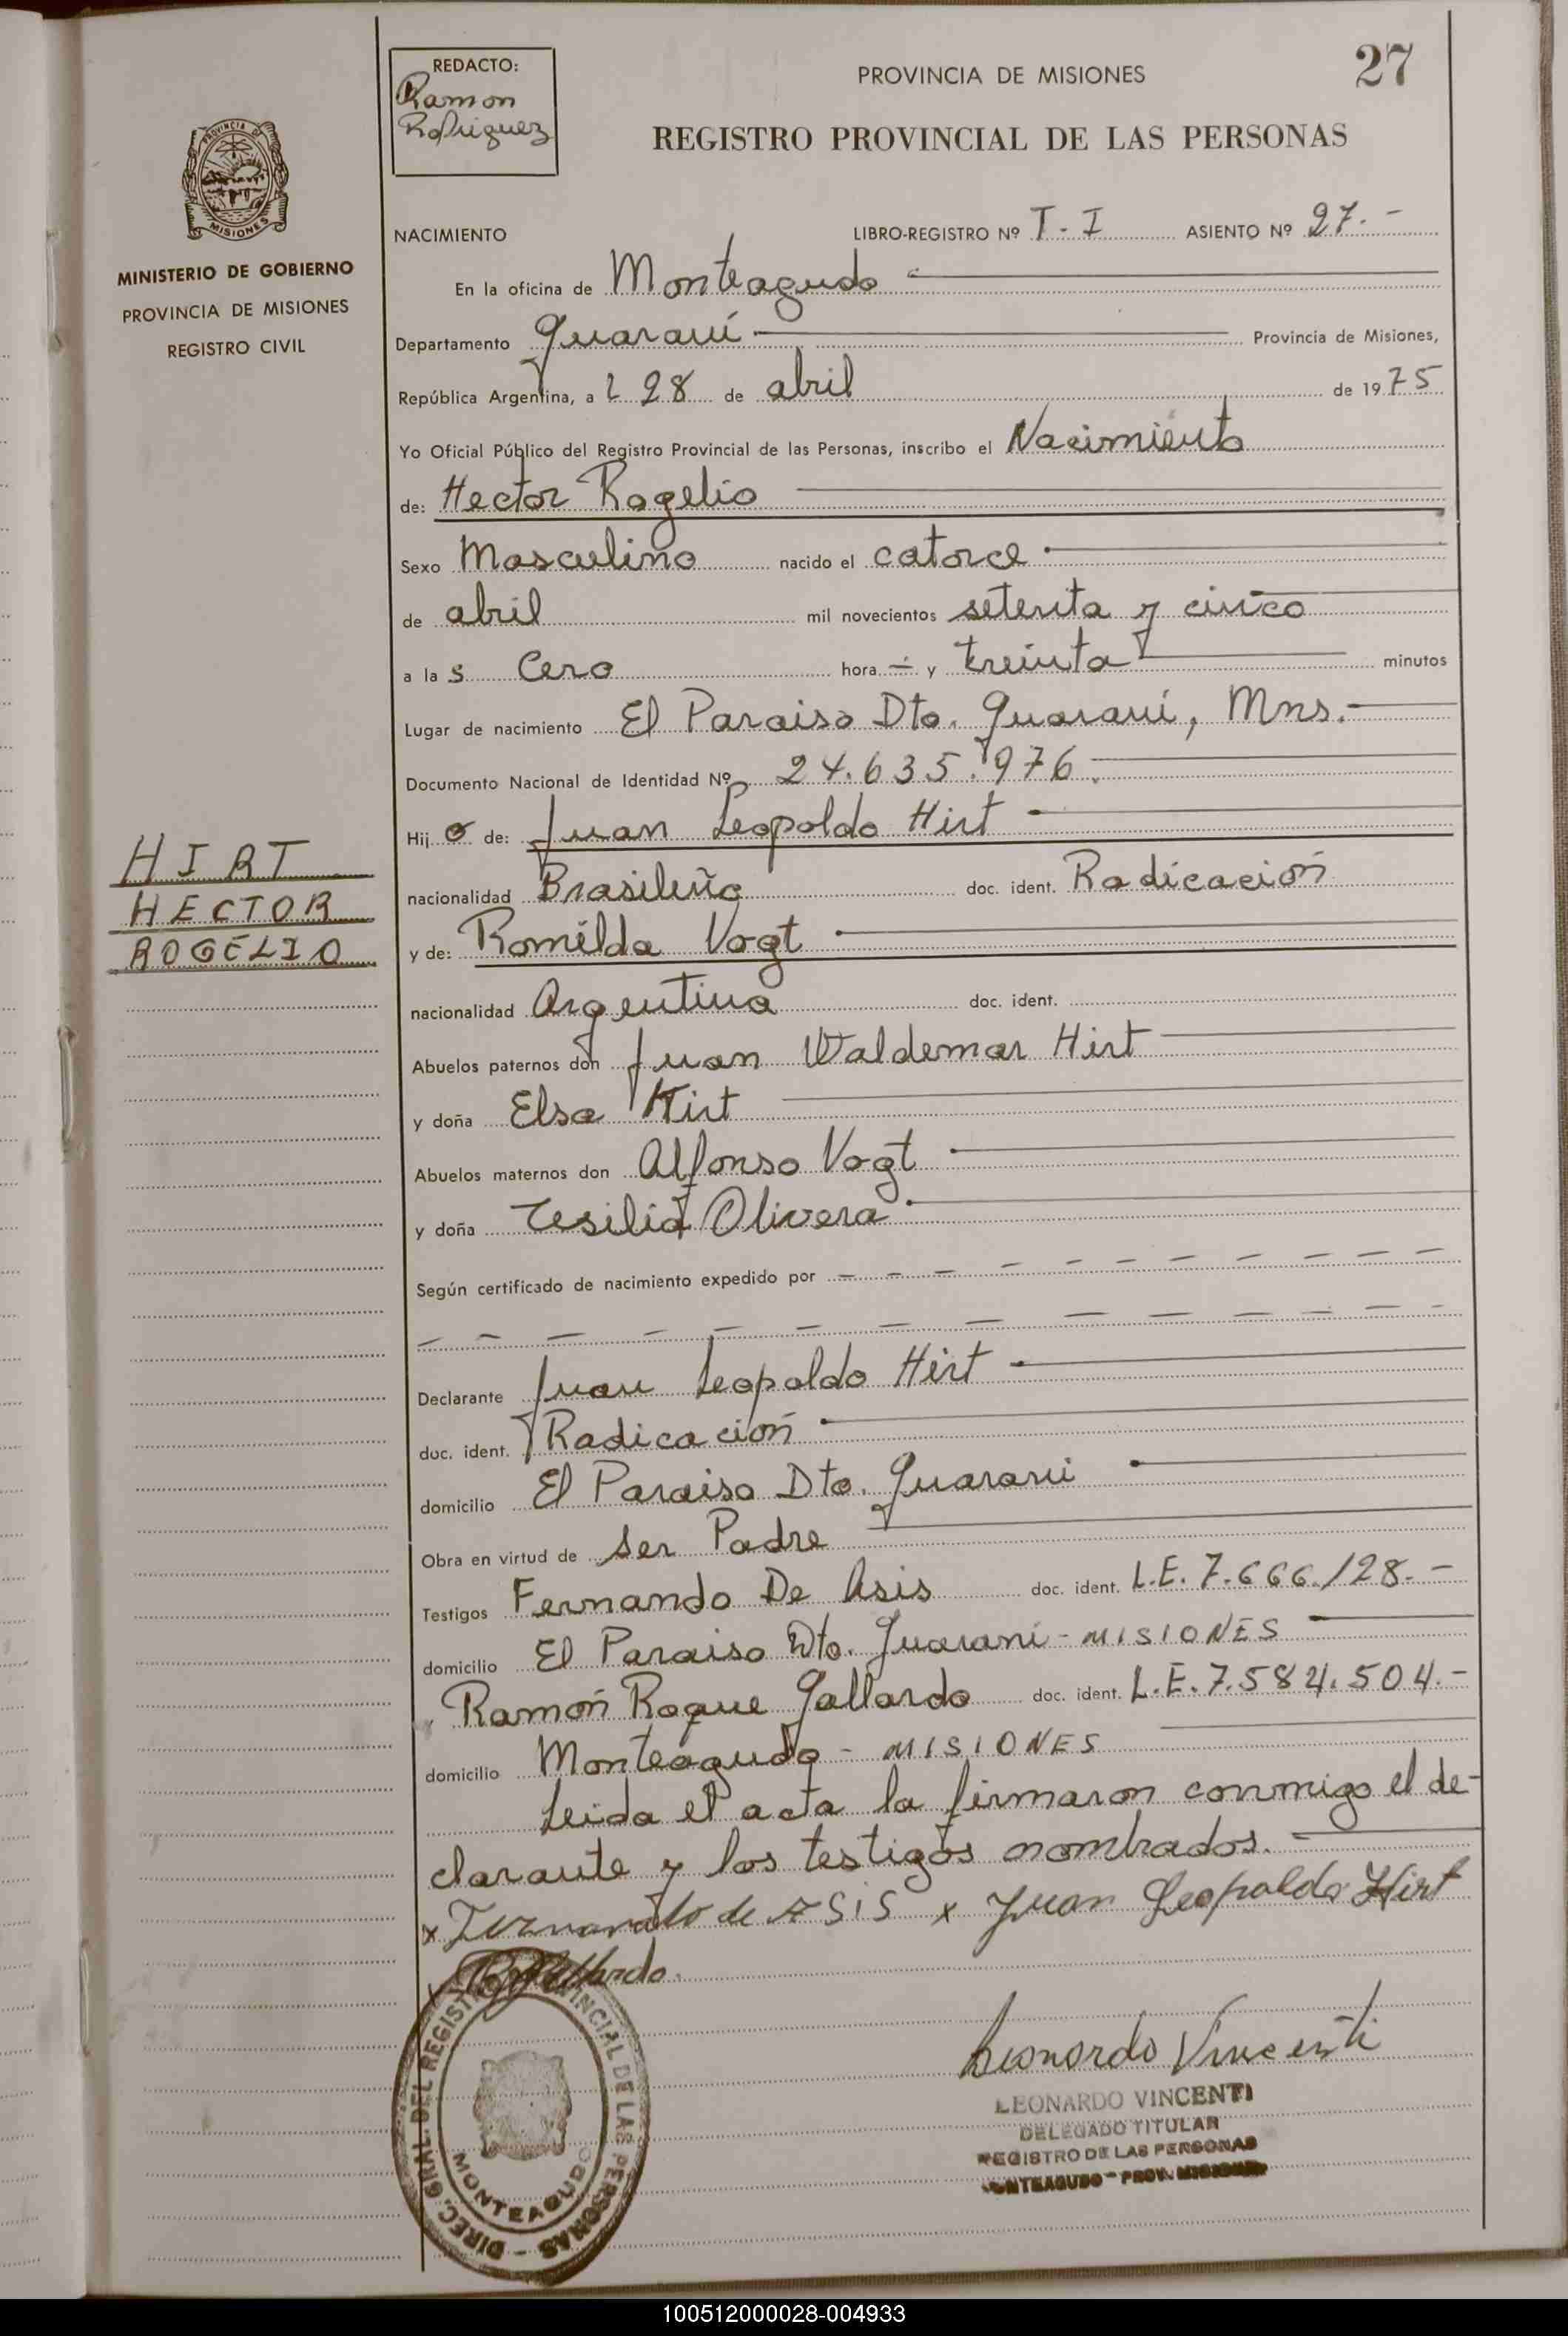 REDACTO:
Ramon
Rodriguez
PROVINCIA DE MISIONES
27
REGISTRO PROVINCIAL DE LAS PERSONAS
PROVINCIA DE
MISIONES
MINISTERIO DE GOBIERNO
PROVINCIA DE MISIONES
REGISTRO CIVIL
NACIMIENTO LIBRO-REGISTRO Nº T-I ASIENTO Nº 27.-
En la oficina de Monteagudo
Departamento Guaraní Provincia de Misiones,
República Argentina, a L 28 de abril de 1975
Yo Oficial Público del Registro Provincial de las Personas, inscribo el Nacimiento
de: Hector Rogelio
Sexo Masculino nacido el catorce
de abril mil novecientos setenta y cinco
a las Cero hora - y treinta minutos
Lugar de nacimiento El Paraiso Dto. Guaraní, Mns.-
Documento Nacional de Identidad Nº 24.635.976.
Hijo de: Juan Leopoldo Hirt
HIRT
HECTOR
ROGELIO
nacionalidad Brasileña doc. ident. Radicación
y de: Romilda Vogt
nacionalidad Argentina doc. ident.
Abuelos paternos don Juan Waldemar Hirt
y doña Elsa Hirt
Abuelos maternos don Alfonso Vogt
y doña Olivera
Según certificado de nacimiento expedido por
Declarante Juan Leopoldo Hirt
doc. ident. Radicación
domicilio El Paraiso Dto. Guarani
Obra en virtud de ser Padre
Testigos Fernando De Asis doc. ident. L.E. 7.666.128.-
domicilio El Paraiso Dto. Guaraní - MISIONES
y Ramón Roque Gallardo doc. ident. L.E. 7.584.504.-
domicilio Monteagudo - MISIONES
Leida el acta la firmaron conmigo el de-
clarante y los testigos nombrados.-
x Fernando de ASiS x Juan Leopoldo Hirt
Leonardo Vincenti
LEONARDO VINCENTI
DELEGADO TITULAR
REGISTRO DE LAS PERSONAS
MONTEAGUDO - PROV. MISIONES
DIREC. GRAL. DEL REGISTRO PROVINCIAL DE LAS PERSONAS -
MONTEAGUDO
100512000028-004933